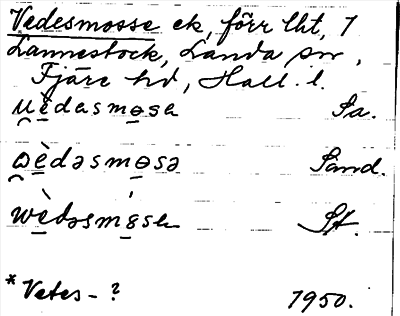 Vedesmosse ek, förr lht, 7
Lannestock, Landa sn,
Fjäre hd, Hall. l.
u̯èdəsmɵsə Sa.
ɷèdəsmɵsə Sand.
wèdəsmɵ́sə St.
*Vetes-? 1950.